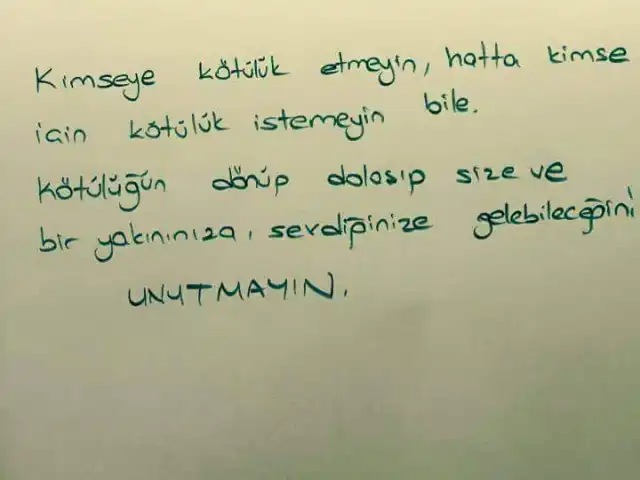 Kimseye kötülük etmeyin, hatta kimse
için kötülük istemeyin bile.
Kötülüğün dönüp dolaşıp size ve
bir yakınınıza, sevdiğinize gelebileceğini
UNUTMAYIN.